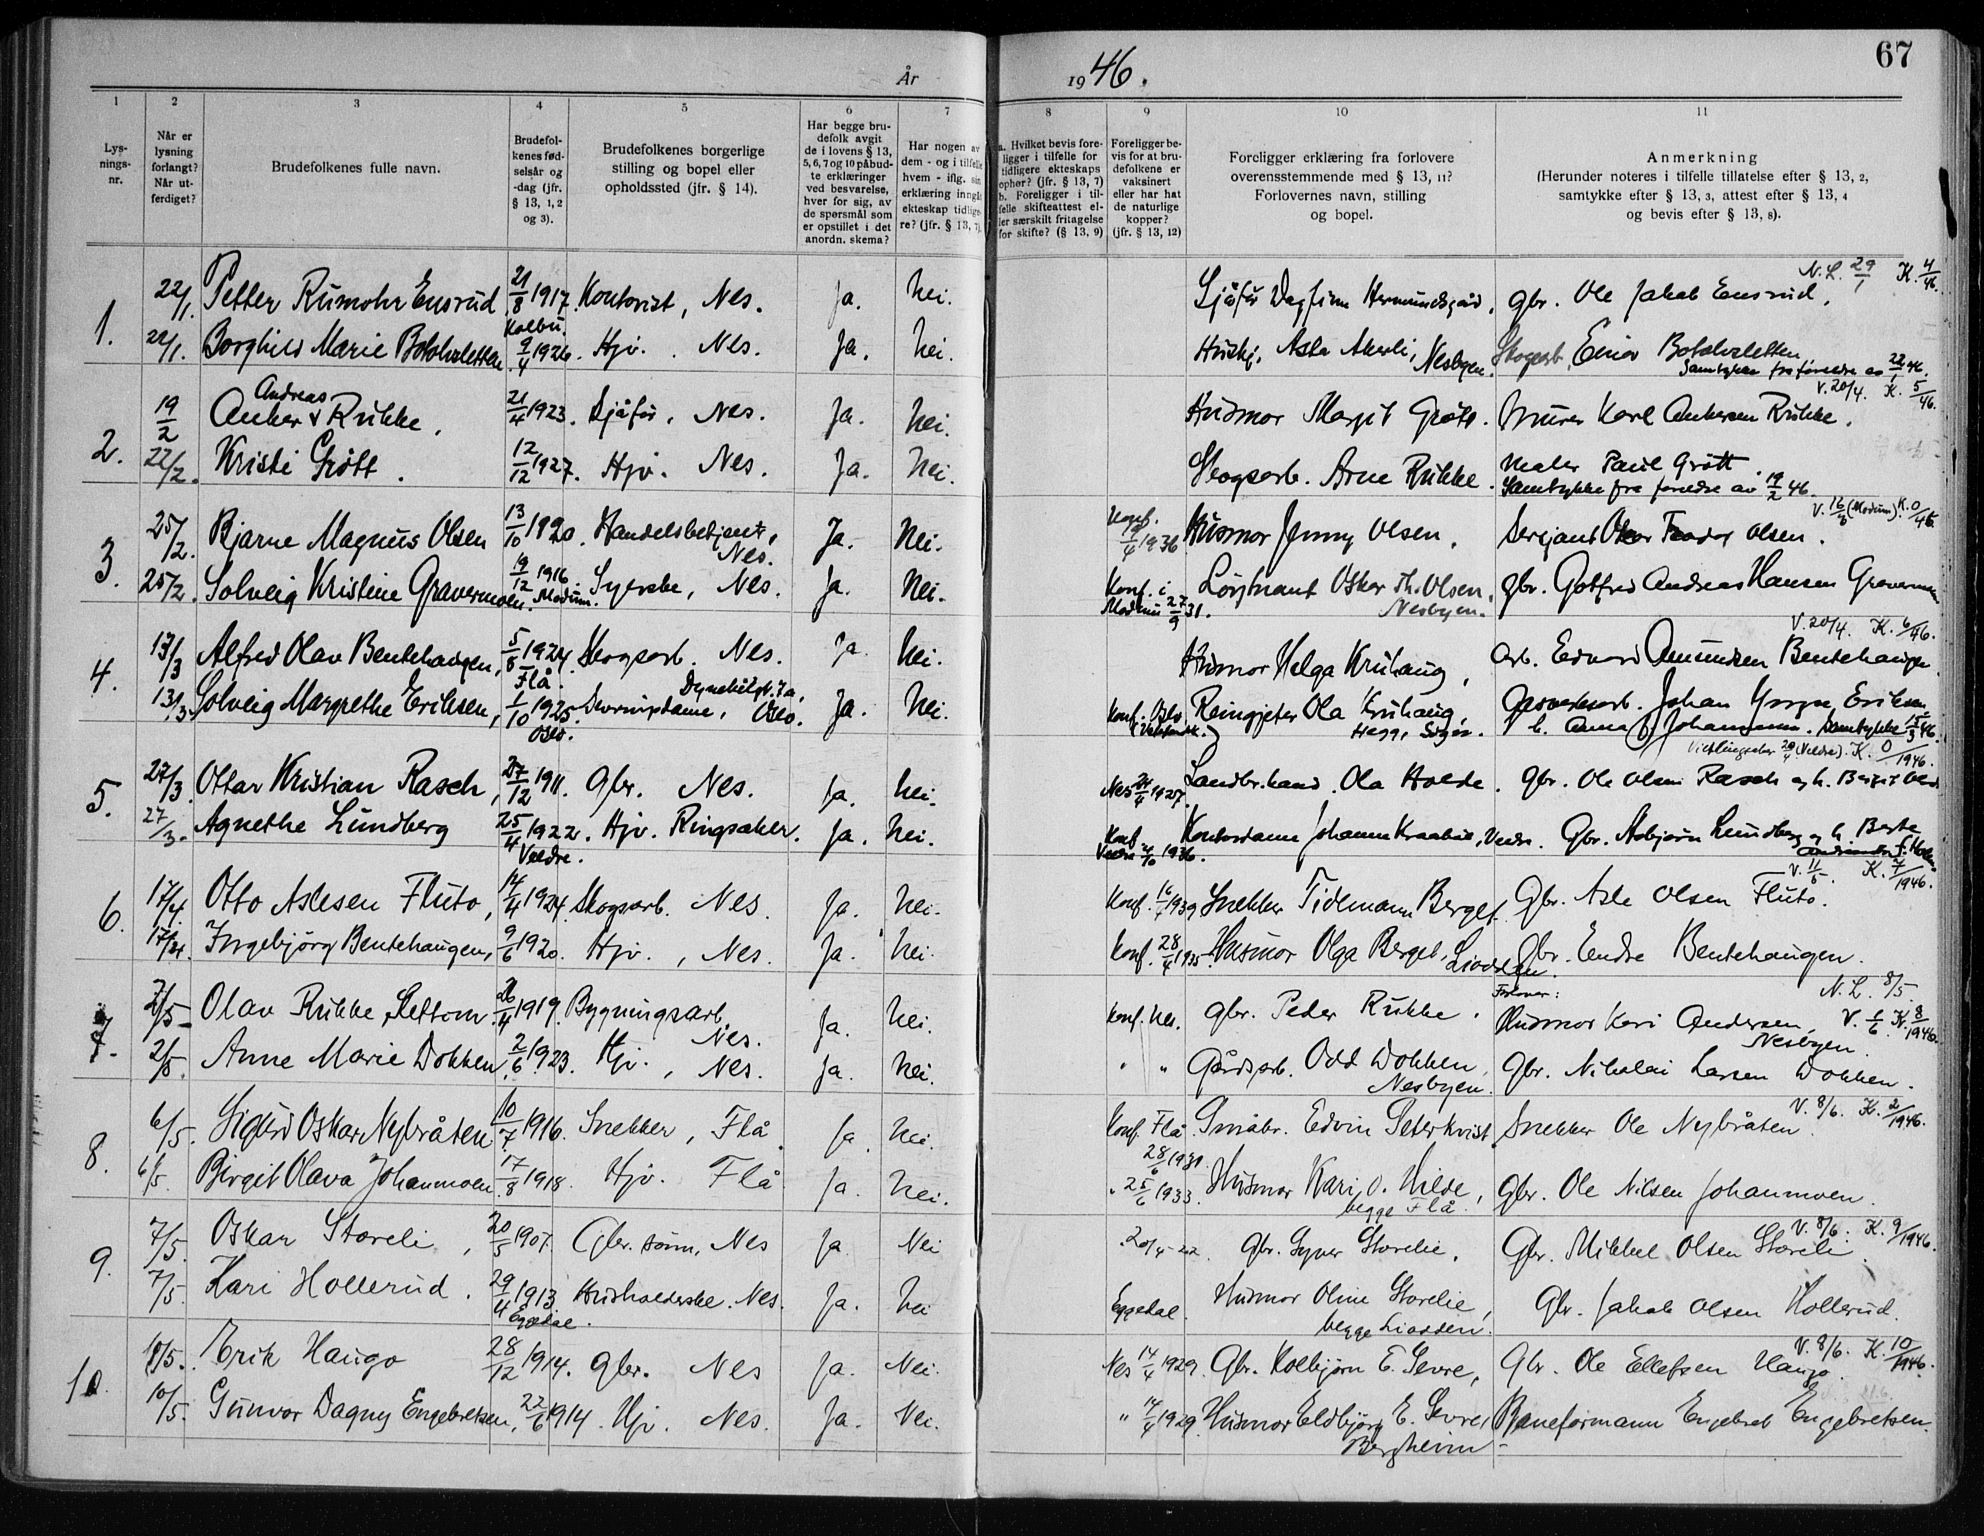 67
År 1946.
1 2 3 4 5 6 7 8 9 10 11
Lys-
nings-
nr.
Når er
lysning
forlangt?
Når ut-
ferdiget?
Brudefolkenes fulle navn.
Brudefol-
kenes fød-
selsår og
-dag (jfr.
§ 13, 1, 2
og 3).
Brudefolkenes borgerlige
stilling og bopel eller
opholdssted (jfr. § 14).
Har begge bru-
defolk avgit
de i lovens § 13,
5, 6, 7 og 10 påbud-
te erklæringer
ved besvarelse,
hver for sig, av
de spørsmål som
er opstillet i det
anordn. skema?
Har nogen av
dem - og i tilfelle
hvem - iflg. sin
erklæring inngåt
ekteskap tidlige-
re? (jfr. § 13, 7).
a. Hvilket bevis fore-
ligger i tilfelle for
tidligere ekteskaps
ophør? (jfr. § 13, 7)
b. Foreligger i til-
felle skifteattest el-
ler særskilt fritagelse
for skifte? (§ 13, 9)
Foreligger be-
vis for at bru-
defolkene er
vaksinert
eller har hat
de naturlige
kopper?
(jfr. § 13, 12)
Foreligger erklæring fra forlovere
overensstemmende med § 13, 11?
Forlovernes navn, stilling
og bopel.
Anmerkning
(Herunder noteres i tilfelle tillatelse efter § 13, 2,
samtykke efter § 13, 3, attest efter § 13, 4
og bevis efter § 13, 8).
N. L. 29/1 K. 4/46.
1. 22/1. Petter Rumohr Ensrud 21/8 1917. Kontorist, Nes. Ja. Nei. Sjåfør Dagfinn Hermundsgård, gbr. Ole Jakob Ensrud.
Kolbu.
22/1. Borghild Marie Bolohaletten 9/4 1926. Hjv. Nes. Ja. Nei. Huskj. Asta Akerli, Nesbyen. Skogsarb. Einar Bolohaletten.
Samtykke fra foreldre av 22/1 46.
V. 20/4. K. 5/46.
Andreas
2. 19/2 Anker Rukke. 21/4 1923. Sjåfør, Nes. Ja. Nei. Husmor Margit Grøtt. Murer Karl Ankersen Rukke.
22/2. Kristi Grøtt. 12/12 1927. Hjv. Nes. Ja. Nei. Skogsarb. Arne Rukke. Maler Paul Grøtt.
Samtykke fra foreldre av 19/2 46.
V. 16/3 (Modum). K. 0/46.
3. 25/2. Bjarne Magnus Olsen 13/10 1920. Handelsbetjent, Nes. Ja. Nei. Konf. 19/4 1936 Husmor Jenny Olsen. Sersjant Oskar Teodor Olsen.
25/2. Solveig Kristine Gravermoen. 19/12 1916 Modum. Syerske, Nes. Ja. Nei. Konf. i Modum 27/9 31. Løytnant Oskar Th. Olsen, Nesbyen. gbr. Gotfred Andreas Hansen Gravermoen
V. 20/4. K. 6/46.
4. 13/3 Alfred Olav Bentehaugen, 5/8 1924. Flå. Skogsarb. Nes. Ja. Nei. Husmor Helga Kruhaug, arb. Edvard Amundsen Bentehaugen
13/3. Solveig Margrethe Eriksen, 1/10 1925. Oslo. Oslo. Ja. Nei. Konf. Oslo Reingjeter Ola Kruhaug, Hegg, Sogn. Gasverksarb. Johan Yngve Eriksen
h. Anna Johannesen. Samtykke 15/3 46.
(Veldre). K. 0/1946.
5. 27/3. Ottar Kristian Rasch, 27/12 1911. Gbr. Nes. Ja. Nei. Nes 24/4 1927. Landbr.kand. Ola Holde. gbr. Ole Olsen Rasch og h. Bergit
27/3. Agnethe Lundberg 25/4 1922. Veldre. Hjv. Ringsaker. Ja. Nei. Konf. Veldre 1936. Kontordame Johanne Kraabøl, Veldre. Gbr. Asbjørn Lundberg og h. Berte
V. 11/5. K. 7/1946.
6. 17/4. Otto Aslesen Fluto, 14/4 1924. Skogsarb. Nes. Ja. Nei. Konf. 1939 Snekker Tidemann Berget. Gbr. Asle Olsen Fluto.
17/4. Ingebjørg Bentehaugen, 9/6 1920. Hjv., Nes. Ja. Nei. Konf. 28/4 1935. Husmor Olga Berget, Liodden. Gbr. Endre Bentehaugen.
N. L. 8/5.
7. 2/5 Olav Rukke Settom. 26/4 1919. Bygningsarb. Nes. Ja. Nei. Konf. Nes. Gbr. Peder Rukke. Forlover: Husmor Kari Andersen, Nesbyen. V. 1/6. K. 8/1946.
2/5. Anne Marie Dokken 2/6 1923. Hjv., Nes. Ja. Nei. " " Gårdsarb. Odd Dokken, Nesbyen. Gbr. Nikolai Larsen Dokken.
V. 8/6. K. 2/1946.
8. 6/5. Sigurd Oskar Nybråten 10/7 1916. Snekker, Flå Ja Nei. Konf. Flå 28/6 1931. Småbr. Edvin Peterkvist, Snekker Ole Nybråten.
6/5. Birgit Olava Johannmoen. 17/8 1918. Hjv. Flå Ja. Nei. " 25/6 1933. Husmor Kari O. Hilde, begge Flå. Gbr. Ole Nilsen Johannmoen.
V. 8/6. K. 9/1946.
9. 7/5. Oskar Storeli, 20/5 1907. Gbr. sønn, Nes Ja Nei " 20/4-22. Gbr. Syver Storelie. Gbr. Mikkel Olsen Storeli.
7/5. Kari Hollerud. 29/4 1913. Eggedal. Husholderske. Nes. Ja. Nei Eggedal. Husmor Oline Storelie, begge Liodden. Gbr. Jakob Olsen Hollerud.
V. 8/6. K. 10/1946.
10. 10/5. Erik Haugo 28/12 1914. Gbr. Nes Ja. Nei. Nes 14/4 1929. Gbr. Kolbjørn E. Sevre, Gbr. Ole Ellefsen Haugo.
10/5. Gunvor Dagny Engebretsen, 22/6 1914. Hjv. Nes. Ja. Nei. " 14/4 1929. Husmor Eldbjørg E. Sevre, Bergheim. Baneformann Engebret Engebretsen.